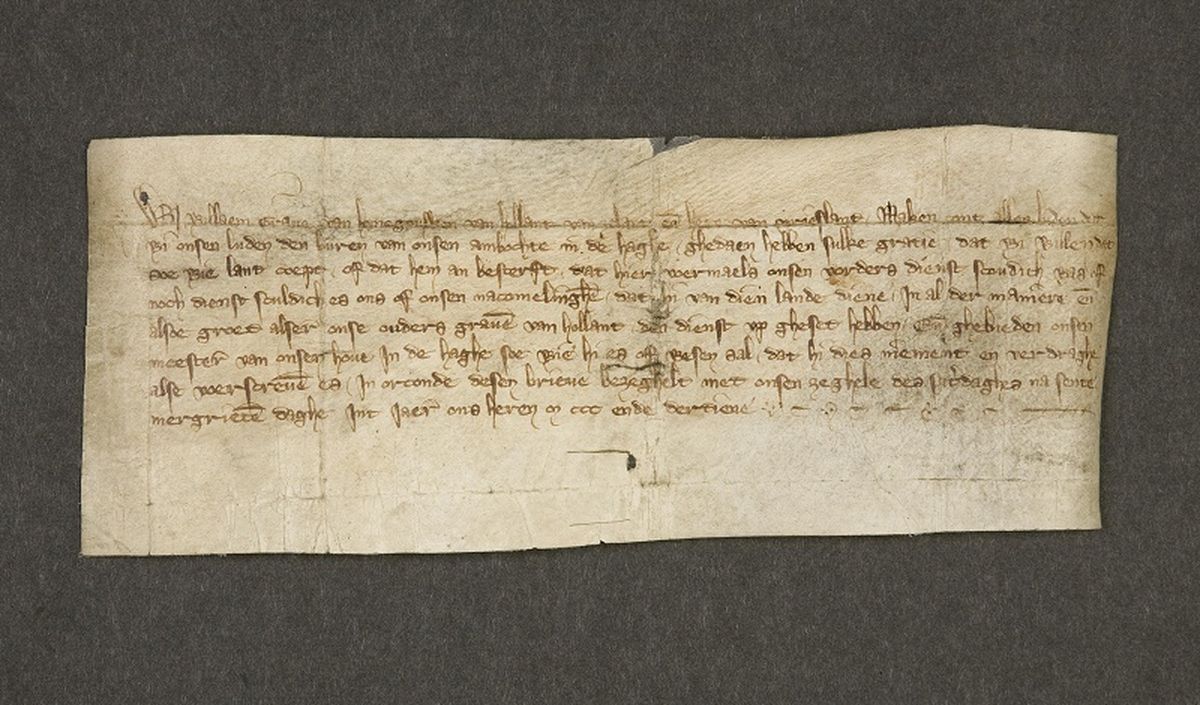 Wi Willem Grave van henegouwen van hollant van zelant eñ here van vrieslant. Maken cont allen luden dat
Wi onsen luden den buren van onsen ambochte in de haghe . ghedaen hebben sulke gratie . dat Wi Willen dat
soe Wie lant coept . of dat hem an besterft . dat hier voermaels onsen vorders dienst sculdich Was of
noch dienst sculdich es ons of onsen nacomelinghē . dat hi van dien lande diene . In al der maniere eñ
alsoe groet alser onse ouders gravē van hollant den dienst up gheset hebben . Eñ ghebieden onsen
meester van onsen hove In de haghe soe Wie hi es of Wesen sal . dat hi dies niement en verdraghe
alse voerscrevē es . In orconde desen brieve bezeghelt met onsen zeghele des daghes na sente
mergrietē daghe Int jaer ons heren m ccc ende dertiene